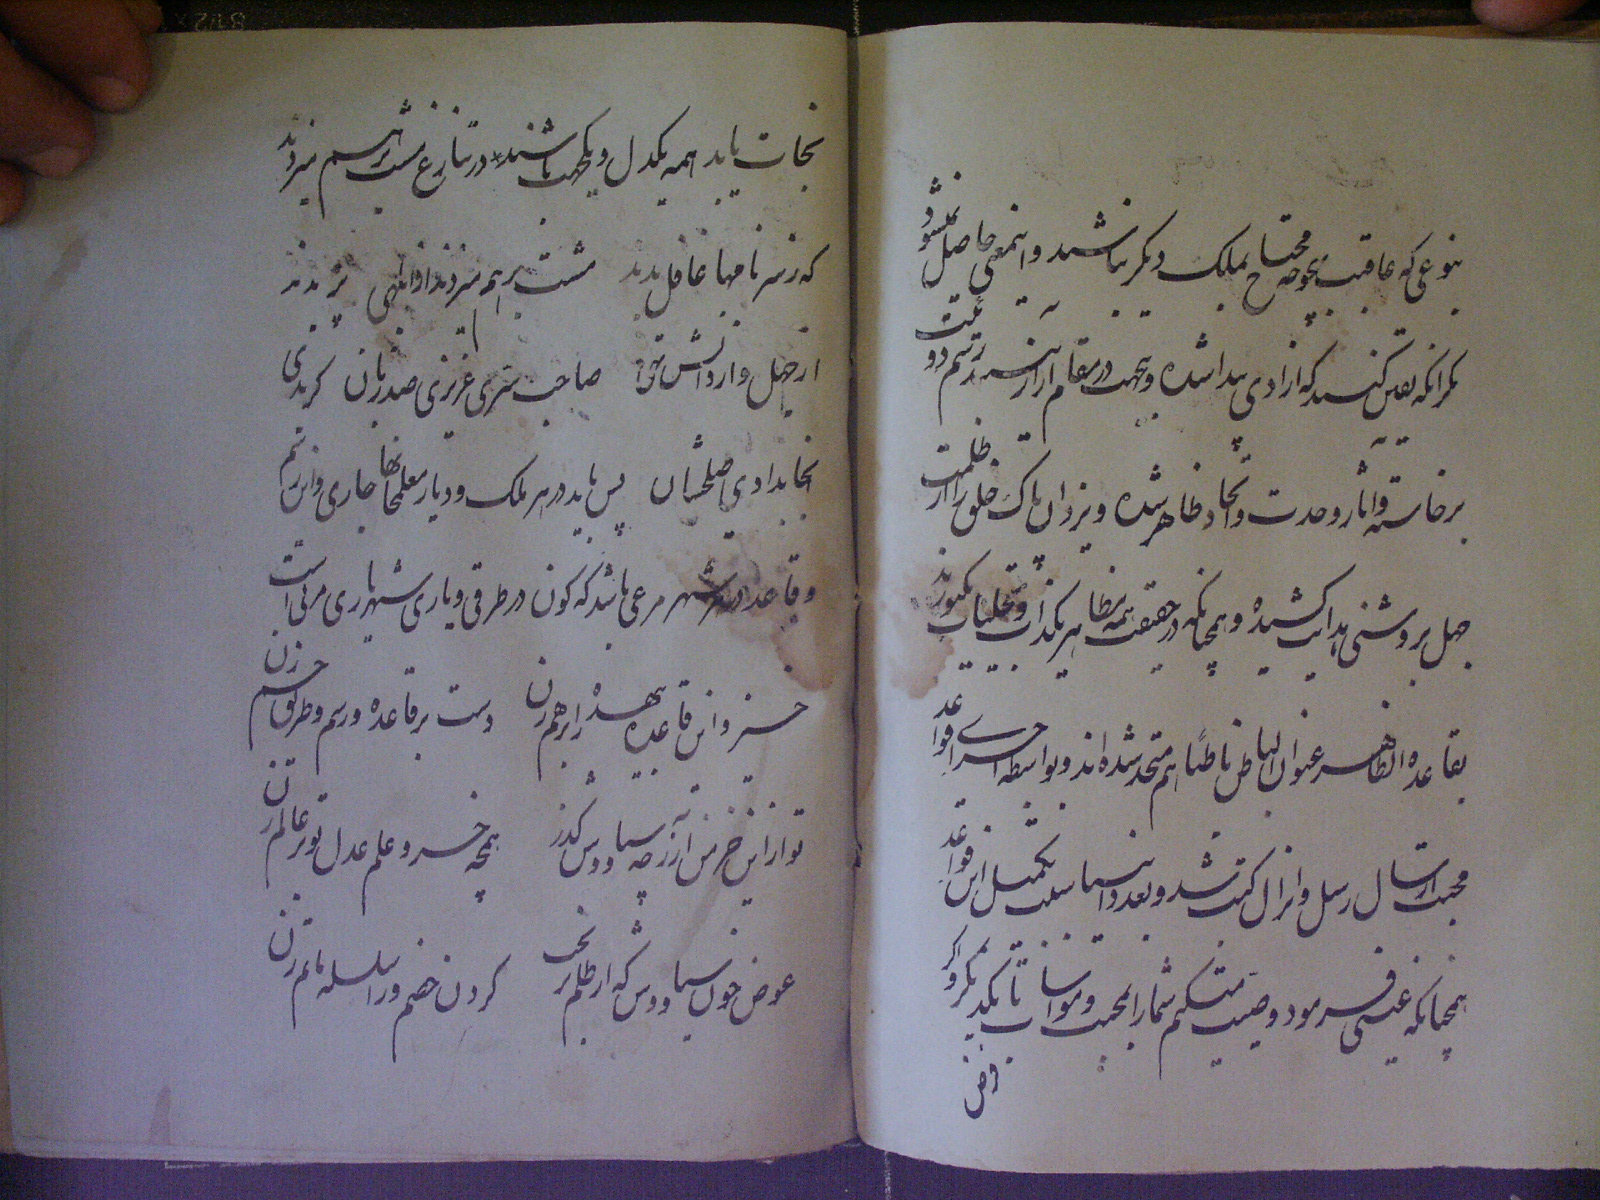 بنوعی که عاقبت بهیچوجه محتاج بملک دیگر نباشند و اینمعنی حاصل نمیشود
مگر انکه یقین کنند که ازادی پیدا شده و بهیچ در مقام ازار نیستند رسم دوئیت
برخاسته و آثار وحدت و اتحاد ظاهر شده و یزدان پاک خلق را از ظلمت
جهل بروشنی هدایت کشیده و همچنانکه در حقیقت همه مظاهر یکذات و تجلیات یکنورند
بقاعده الظاهر عنوان الباطن باطنا هم متحد شده‌اند و بواسطه اجرای قواعد
محبت ارسال رسل و انزال کتب شد و بعد و انبیا سلف تکمیل این قواعد
همچنانکه عیسی فرمود وصیت میکنم شمارا بمحبت و مواسات با یکدیگر و اگر
نجات یابد همه یکدل و یکجهت باشند و در تنازع مشت بر هم میزدند
که ز سر نامها غافل بدند مشت بر هم میزدند از ابلهی پر بدند
از جهل و از دانش تهی صاحب سری عزیزی صد زبان گر بدی
انجا بدادی صلحشان پس باید در هر ملک و دیار معلمخانها جاری و این رسم
و قاعده در هر شهر مرعی باشد که کنون در طرقی و یاری شهریاری مرئی است
خسروا این قاعده بیهده را بر هم زن دست بر قاعده و رسم و طریق جم زن
تو ازین خرمن آزر چه سیاووس گذر همچه خسرو علم عدل تو بر عالم زن
عوض خون سیاووس که از ظلم بریخت گردن خصم ورا سلسله ماتم زن